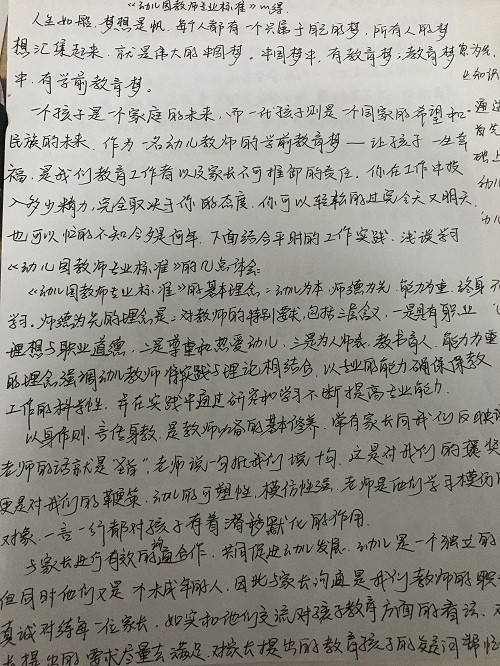 《幼儿园教师专业标准》心得
人生如船，梦想是帆，每个人都有一个只属于自己的梦，所有人的梦
想汇集起来，就是伟大的中国梦。中国梦中，有教育梦；教育梦
中，有学前教育梦。
一个孩子是一个家庭的未来，而一代孩子则是一个国家的希望和
民族的未来。作为一名幼儿教师的学前教育梦——让孩子一生幸
福，是我们教育工作者以及家长不可推卸的责任，你在工作中投
入多少精力，完全取决于你的态度，你可以轻松的过完今天又明天，
也可以忙的不知今夕是何年，下面结合平时的工作实践，浅谈学习
《幼儿园教师专业标准》的几点体会：
《幼儿园教师专业标准》的基本理念：幼儿为本，师德为先，能力为重，终身
学习。师德为先的理念是：对教师的特别要求，包括三层含义，一是具有职业
理想与职业道德，二是尊重和热爱幼儿，三是为人师表，教书育人，能力为重
的理念强调幼儿教师将实践与理论相结合，以专业的能力确保保教
工作的科学性，并在实践中通过研究和学习不断提高专业能力。
以身作则，言传身教，是教师必备的基本修养，常有家长向我们反映说
老师的话就是“圣旨”，老师说一句抵我们说十句，这是对我们的褒奖
更是对我们的鞭策，幼儿的可塑性，模仿性强，老师是他们学习模仿的
对象，一言一行都对孩子有着潜移默化的作用。
与家长进行有效的沟通合作，共同促进幼儿发展，幼儿是一个独立的
但同时他们又是个未成年的人，因此与家长沟通是我们教师的职
真诚对待每一位家长，如实和他们交流对孩子教育方面的看法，对
长提出的需求尽量去满足，对家长提出的教育孩子的疑问帮忙